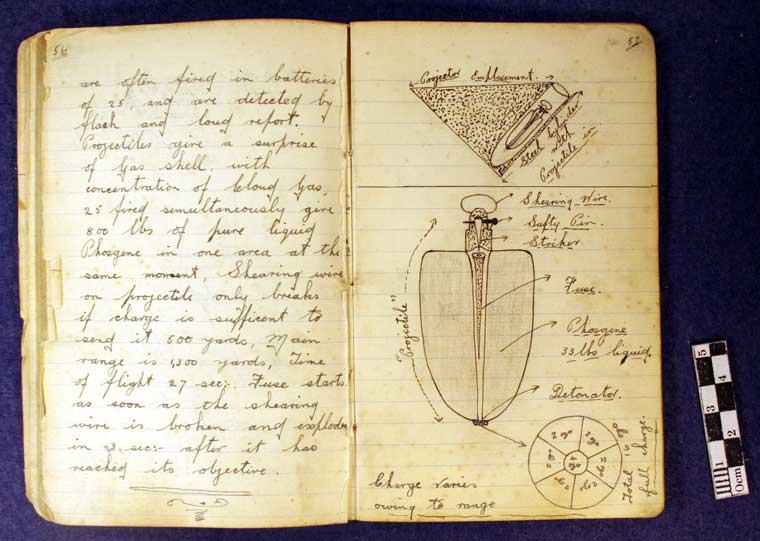 56
are often fired in batteries
of 25, and are detected by
flash and loud report.
Projectiles give a surprise
of Gas shell, with
concentration of Cloud Gas,
25 fired simultaneously give
800 lbs of pure liquid
Phosgene in one area at the
same moment, Shearing wire
on projectile only breaks
if charge is sufficent to
send it 600 yards, Main
range is 1,300 yards, Time
of flight 27 sec:. Fuse starts
as soon as the shearing
wire is broken and explodes
in 3 sec:- after it has
reached its objective.
57
Projector Emplacement.
Steel Cylinder
with
Projectile in
Shearing Wire.
Safty Pin.
Striker
"Projectile"
Fuse.
Phosgene
33 lbs liquid.
Detonator.
2 oz
2 oz
2 oz
2 oz
2 oz
2 oz
2 oz
4 oz
full charge.
Charge varies
owing to range
5
4
3
2
1
0cm